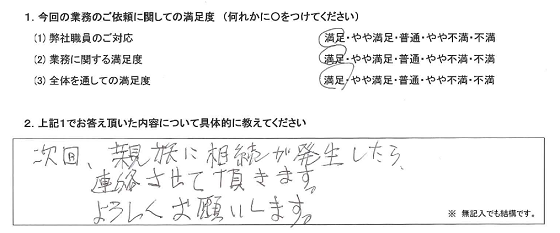 1. 今回の業務のご依頼に関しての満足度 (何れかに〇をつけてください)
(1) 弊社職員のご対応 満足・やや満足・普通・やや不満・不満
(2) 業務に関する満足度 満足・やや満足・普通・やや不満・不満
(3) 全体を通しての満足度 満足・やや満足・普通・やや不満・不満
2. 上記1でお答え頂いた内容について具体的に教えてください
次回、親族に相続が発生したら、
連絡させて頂きます。
よろしくお願いします。
※ 無記入でも結構です。